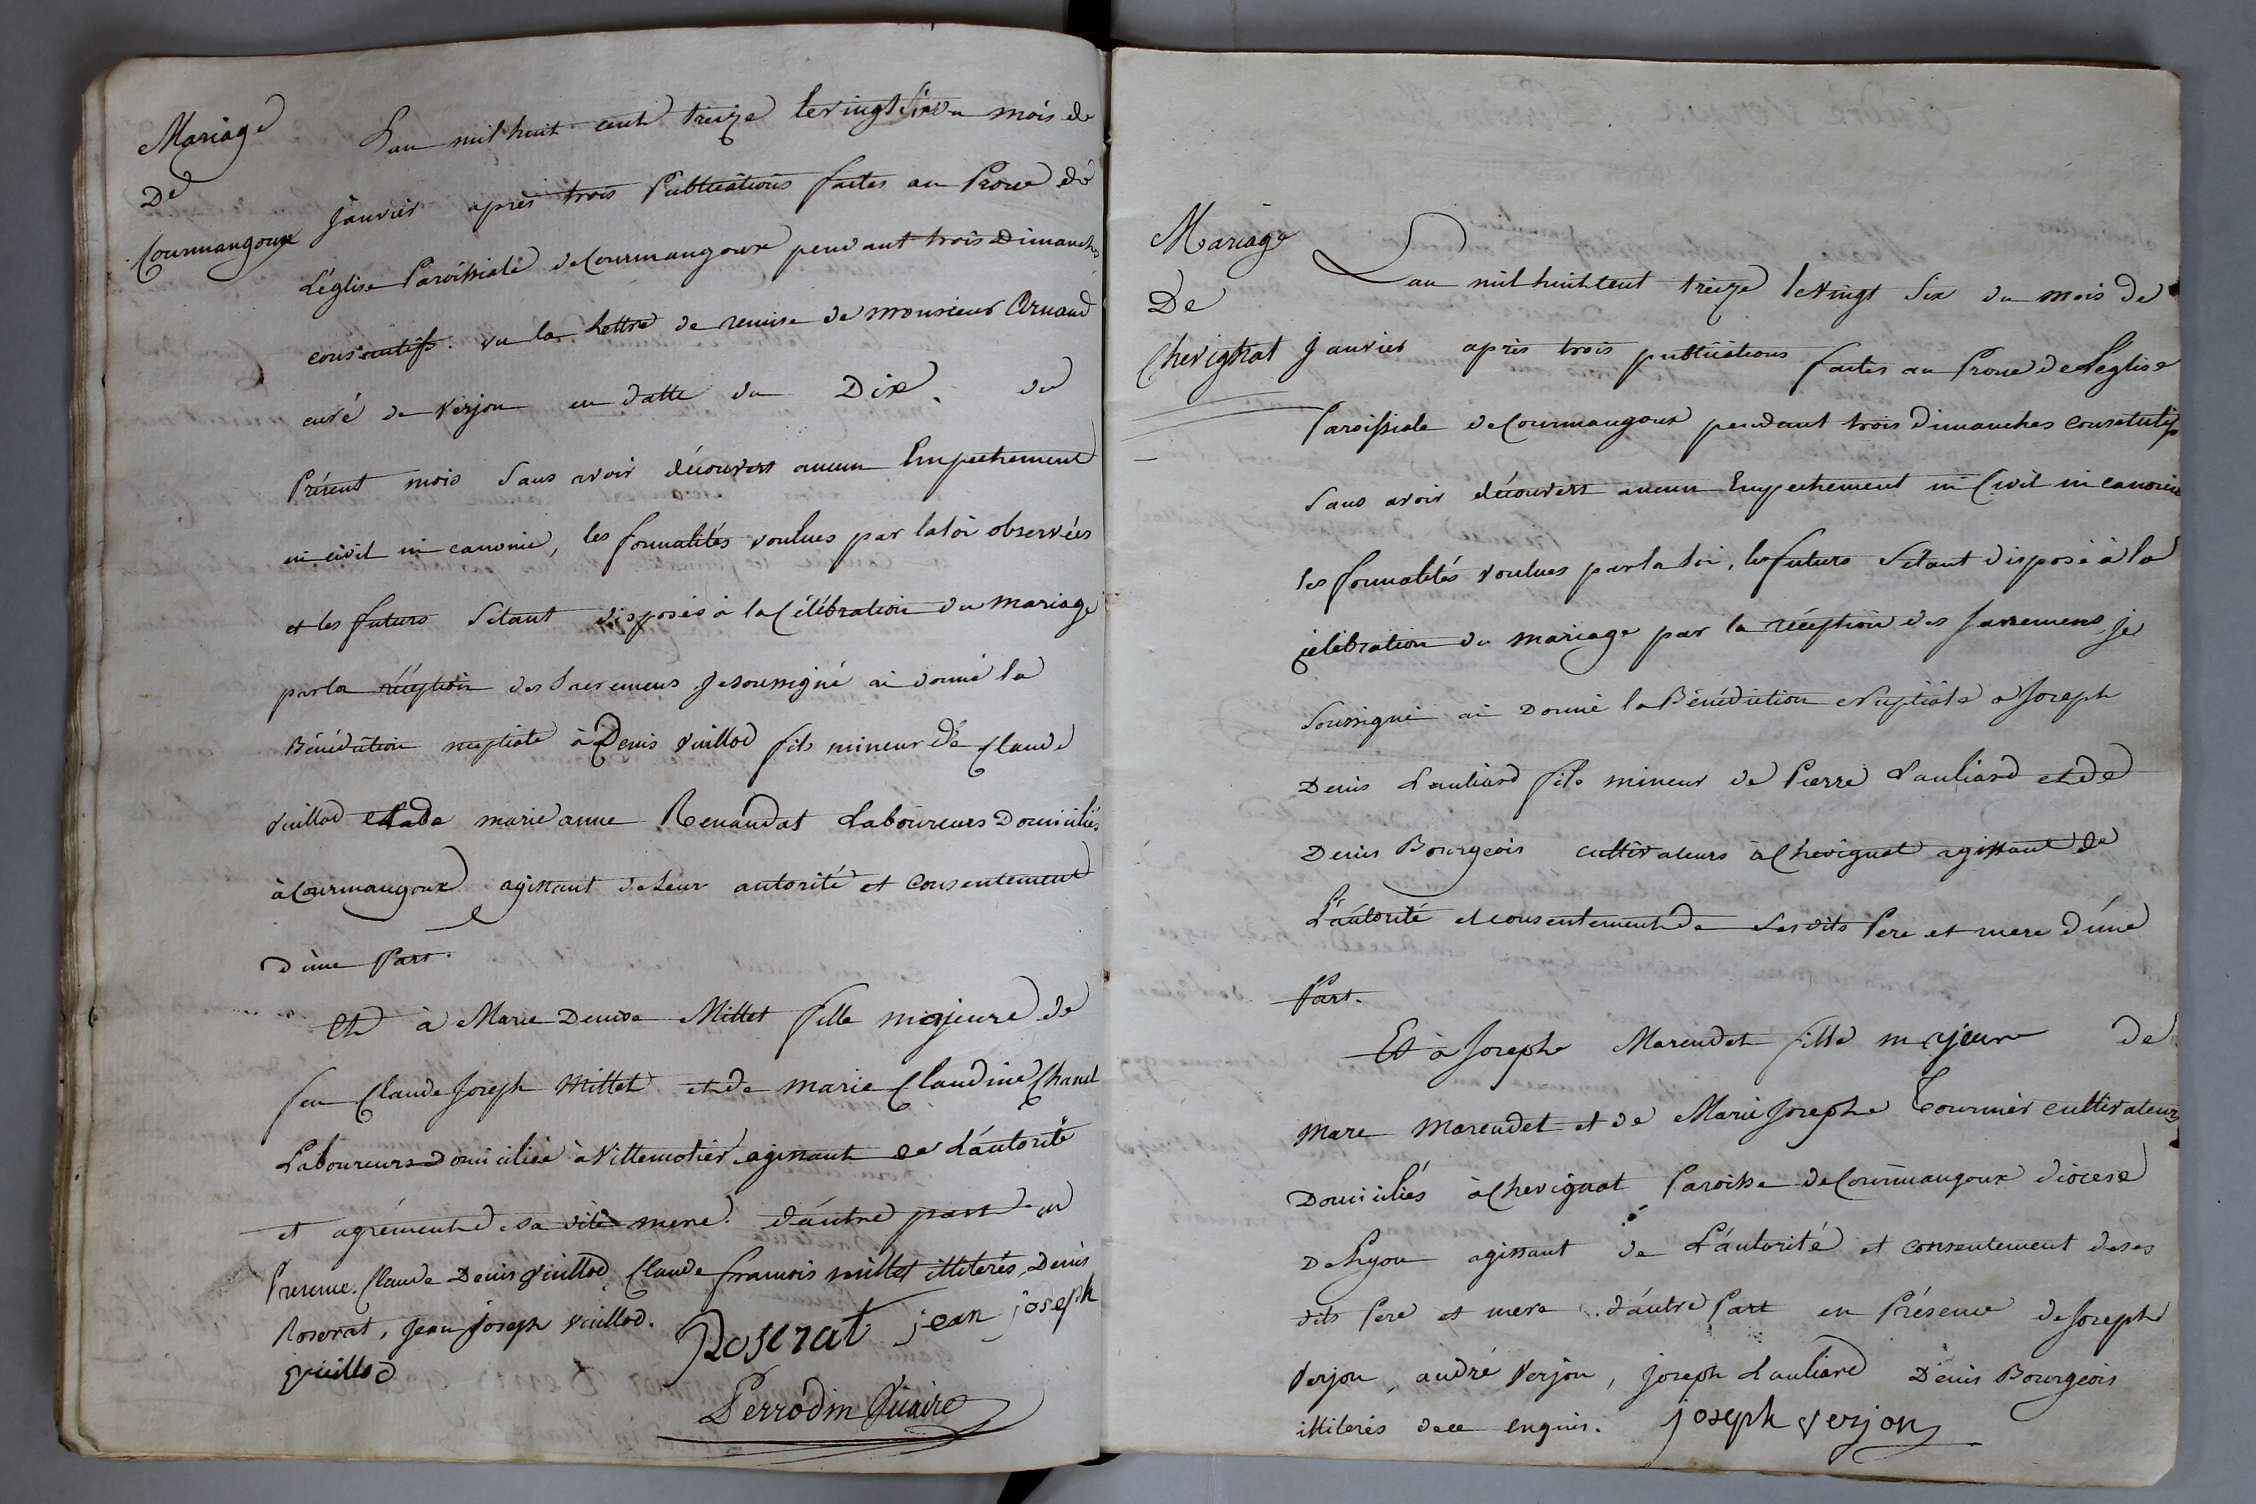 Mariage
De
Courmangoux
L'an mil huit cent treize le vingt six du mois de
janvier après trois Publications faites au Prone de
L'église Paroissiale de Courmangoux pendant trois Dimanches
consécutifs. vu la Lettre de remise de monsieur Arnaud
curé de Verjon en datte du Dix du
Présent mois sans avoir découvert aucun Empechement
ni civil ni canonic, les formalités voulues par la loi observées
et les futurs s'étant disposés à la Célébration du mariage
par la réception des sacremens je soussigné ai donné la
Bénédiction nuptiale à Denis Vuillod fils mineur de Claude
Vuillod et de marie anne Renaudat Laboureurs Domiciliés
à Courmangoux agissant de Leur autorité et consentement
d'une Part.
Et à Marie Denise Millet fille majeure de
feu Claude Joseph Millet et de marie Claudine Chanel
Laboureurs domiciliée à Villemotier agissant de L'autorité
et agrément de sa dite mere d'autre part en
Presence Claude Denis Vuillod Claude francois millet illiterés, Denis
Roserat, Jean Joseph Vuillod.
Roserat jean joseph
Vuillod
Perrodin Vicaire
Mariage
De
Chevignat
L'an mil huit cent treize le vingt six du mois de
Janvier après trois publications faites au Prone de L'église
Paroissiale de Courmangoux pendant trois Dimanches consecutifs
sans avoir découvert aucun Empechement ni Civil ni canonic
les formalités voulues par la loi, les futurs s'étant disposé à la
célébration du mariage par la réception des sacremens je
soussigné ai Donné la Bénédiction Nuptiale a Joseph
Denis Lauliard fils mineur de Pierre Lauliard et de
Denis Bourgeois cultivateurs à Chevignat agissant de
L'autorité et consentement de ses dits Pere et mere d'une
Part.
Et à Josephe Marendet fille majeure de
Marc Marendet et de Marie Josephe Tournier cultivateurs
Domiciliés à Chevignat Paroisse de Courmangoux diocese
De Lyon agissant de L'autorité et consentement de ses
dits Pere et mere d'autre Part en Présence de Joseph
Verjon, andré Verjon, joseph Lauliard Denis Bourgeois
illiterés de ce enquis. joseph verjon